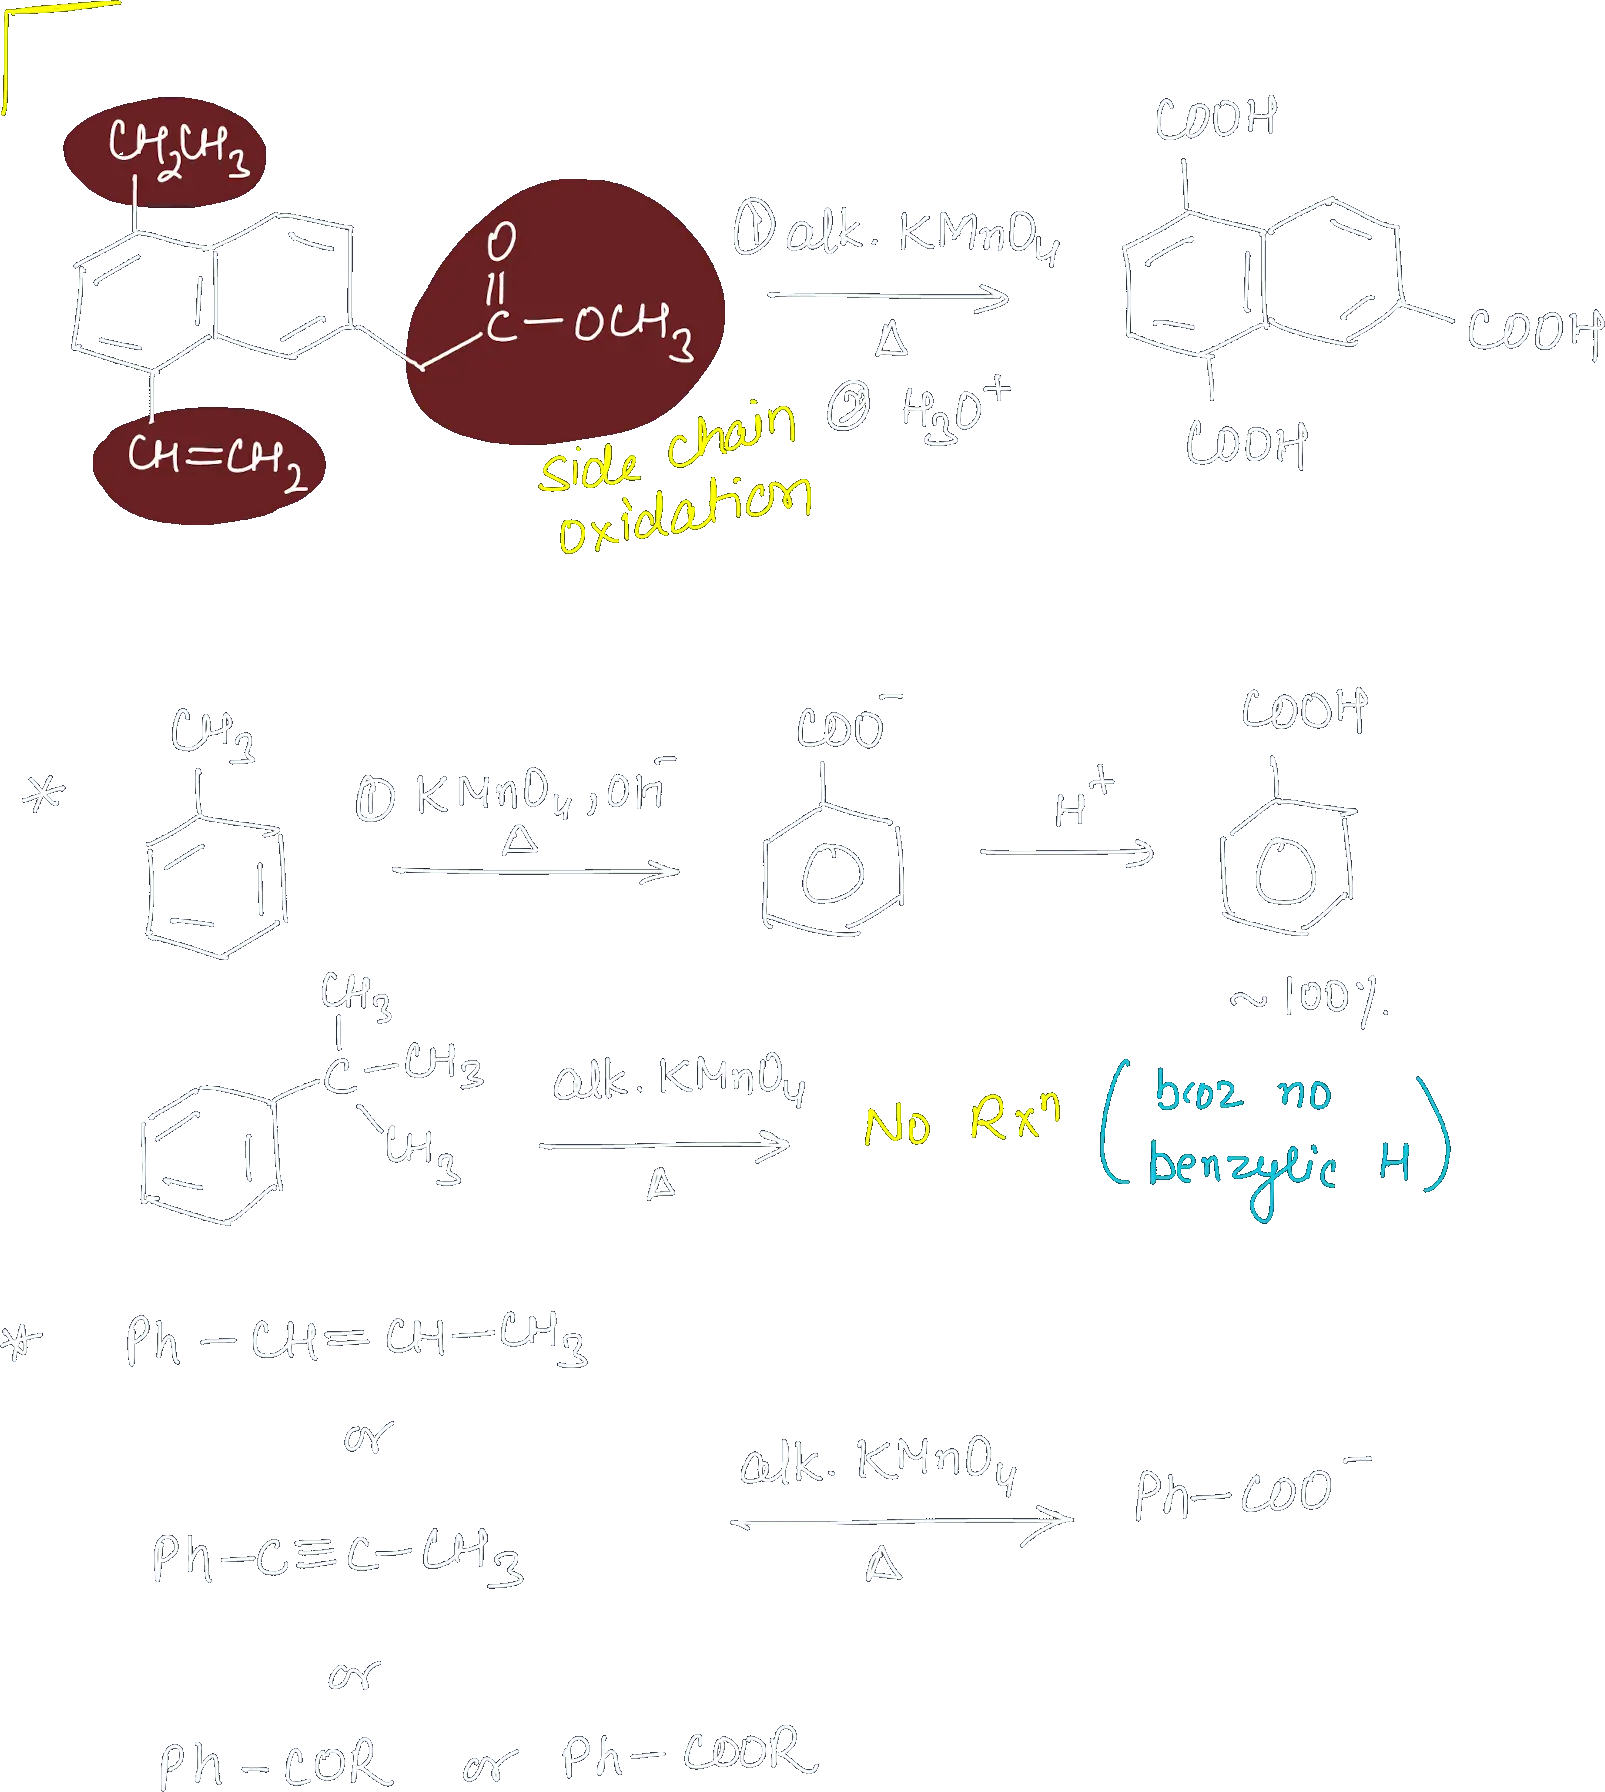 CH₂CH₃
O
||
C–OCH₃
CH=CH₂
side chain
oxidation
① alk. KMnO₄
Δ
② H₃O⁺
COOH
COOH
COOH
* CH₃
① KMnO₄, OH⁻
Δ
COO⁻
H⁺
COOH
~100%.
CH₃
C–CH₃
CH₃
alk. KMnO₄
Δ
No Rxⁿ (bcoz no
benzylic H)
* Ph–CH=CH–CH₃
or
Ph–C≡C–CH₃
or
Ph–COR or Ph–COOR
alk. KMnO₄
Δ
Ph–COO⁻